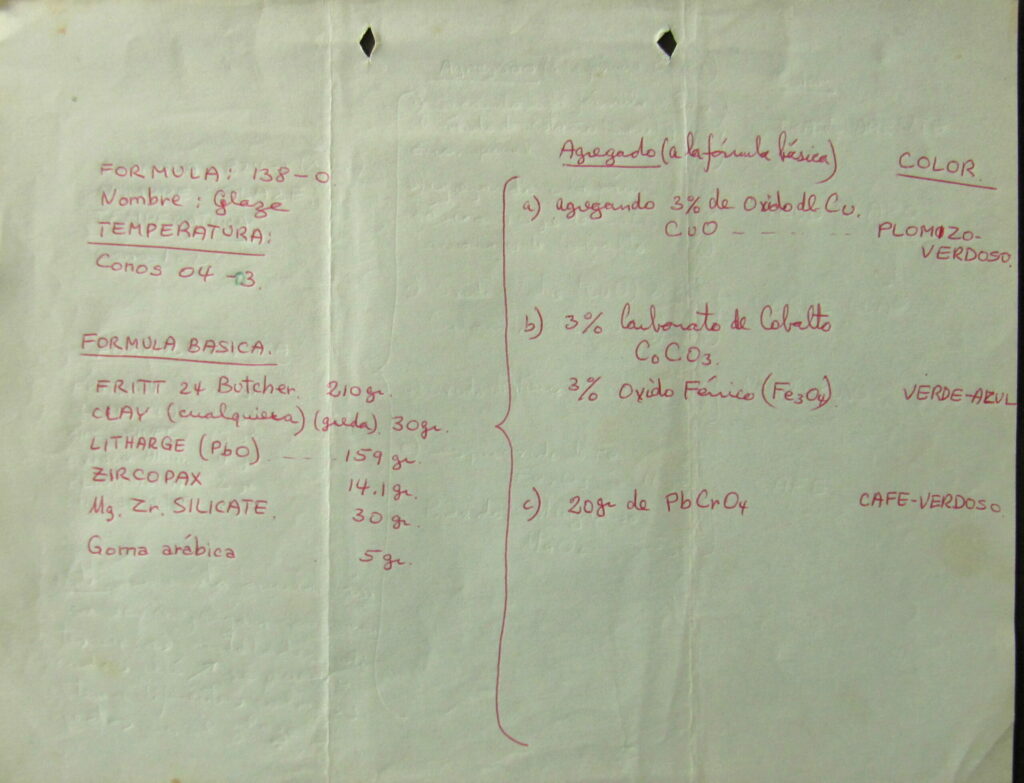 FORMULA: 138-0
Nombre: Glaze
TEMPERATURA:
Conos 04 -03.
FORMULA BASICA.
FRITT 24 Butcher. 210gr.
CLAY (cualquiera) (greda). 30gr.
LITHARGE (PbO) ---- 159 gr.
ZIRCOPAX 14.1gr.
Mg. Zr. SILICATE. 30 gr.
Goma arábica 5gr.
Agregado (a la fórmula básica) COLOR.
a) agregando 3% de Oxido de Cu.
CuO - - - - - PLOMIZO-
VERDOSO.
b) 3% Carbonato de Cobalto
CoCO3.
3% Oxido Férrico (Fe3O4). VERDE-AZUL
c) 20gr de PbCrO4 CAFE-VERDOSO.